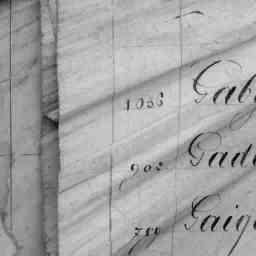 1066 Gab
902 Gad
700 Gaig